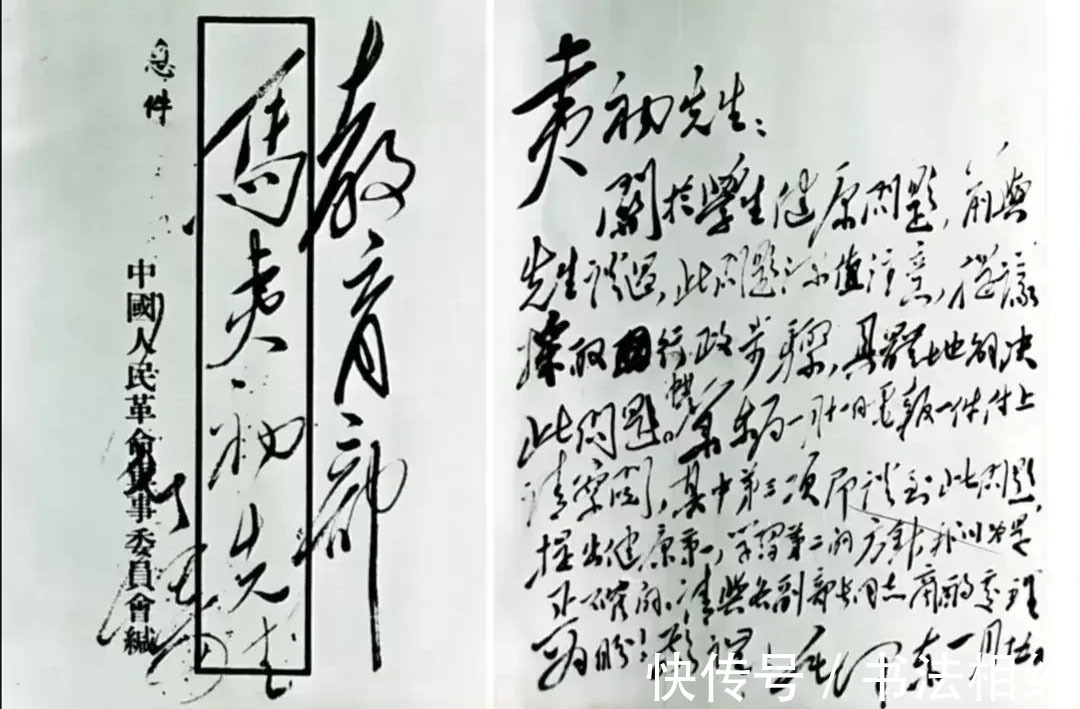 教育部
馬夷初先生
急件
中國人民革命軍事委員會緘
夷初先生：
關於學生健康問題，前與
先生談過，此問題深值注意，提議
採取行政步驟，具體地解決
此問題。一月十一日電報一件付上
請察閱，其中第三項即談到此問題，
提出健康第一，學習第二的方針，我以為是
正確的。請與各副部長同志商酌處理
為盼！毛澤東 一月十五
快传号 / 书法相